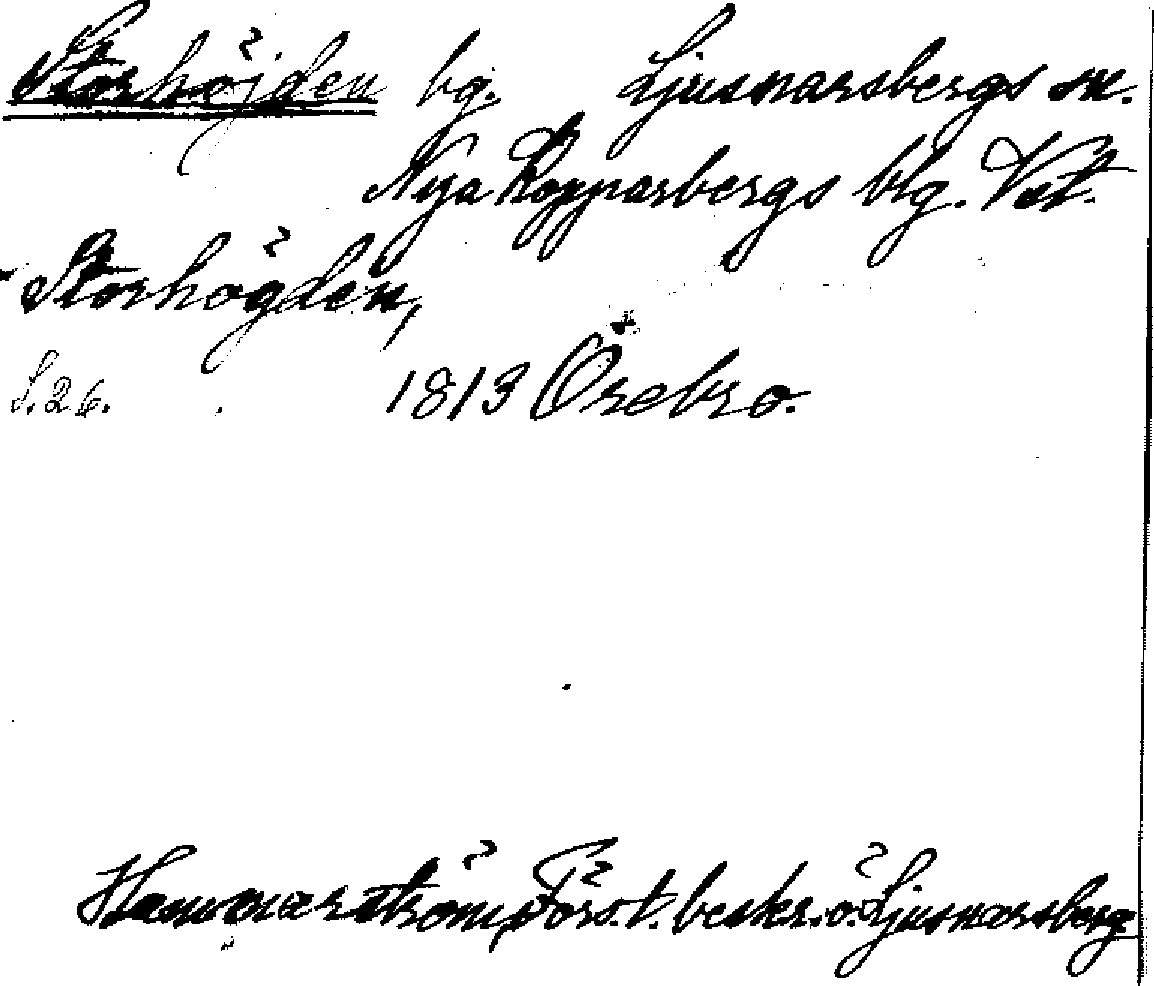 Storhöjden bg. Ljusnarsbergs sn.
Nya Kopparbergs blg. Vstm.
Storhögden,
S.26. 1813 Örebro.
Hammarström, Förs.t. beskr. ö. Ljusnarsberg